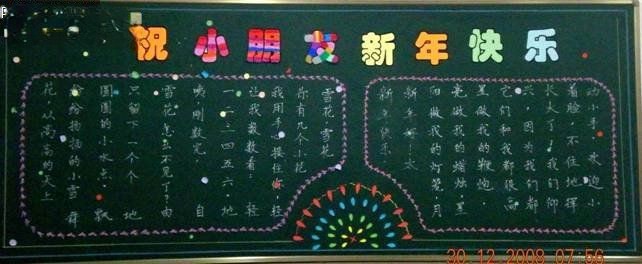 祝小朋友新年快乐
雪花,雪花
你有几个小花
我用手心接住你,轻
让我数数看: 轻
一二三四五六 地
咦,刚数完, 自
雪花怎么不见了? 由
只留下一个个 地
圆圆的小水点。 飘
纷纷扬扬的小雪 舞
花,从高高的天上
新年快乐
新年好!太
阳做我的灯笼,月
亮做我的蜡烛,星
星做我的鞭炮,
它们和我都很高
兴,因为我们都
长大了,我们仰
着脸,不住地挥
动小手,欢迎小
30.12.2008 07:56